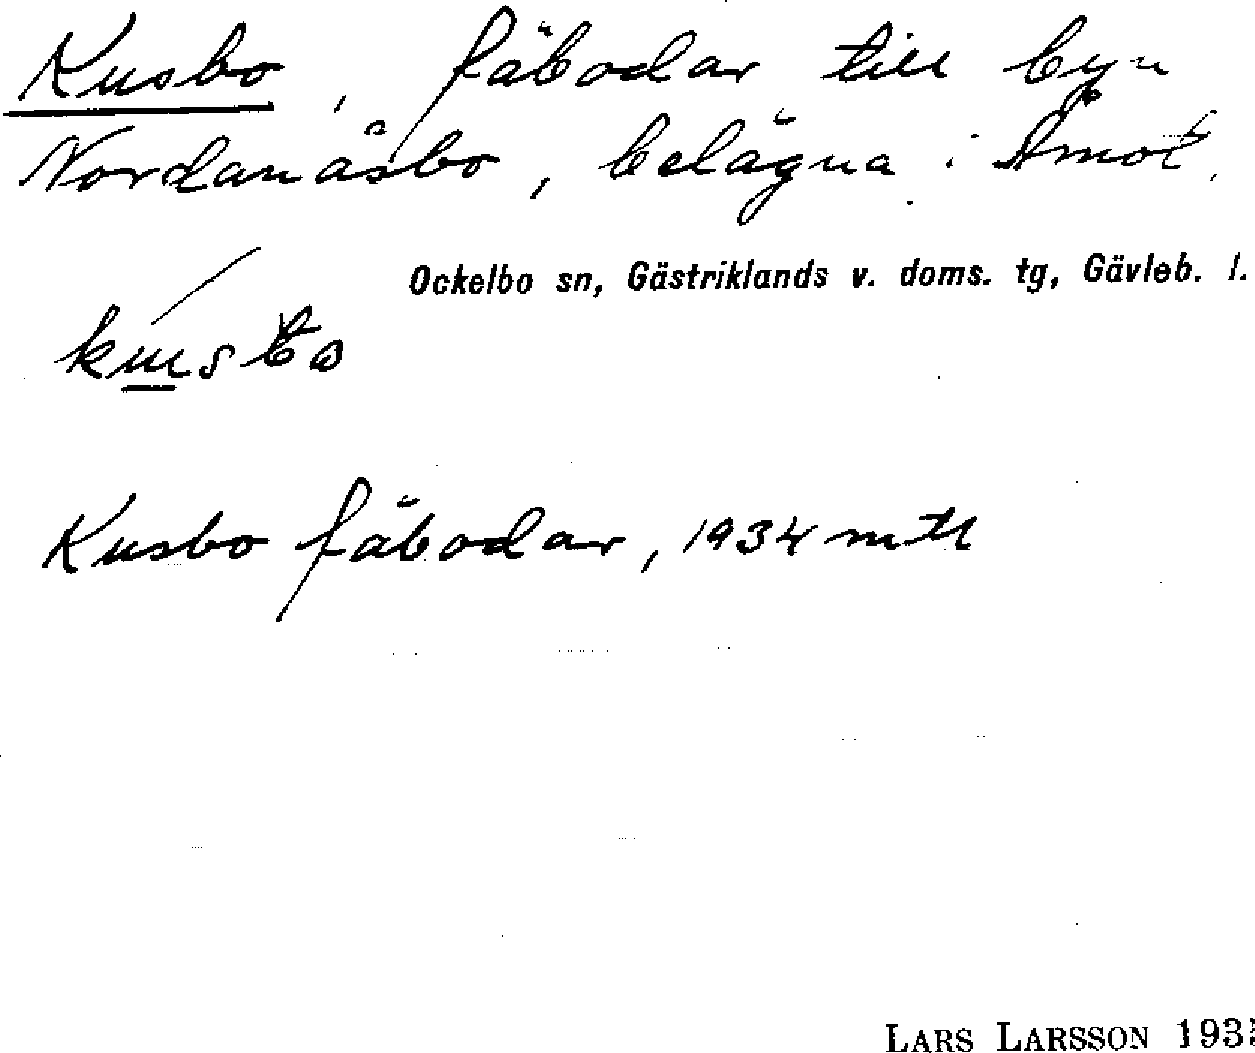 Kusbo, fäbodar till byn
Nordanåsbo, belägna i Åmot.
Ockelbo sn, Gästriklands v. doms. tg, Gävleb. l.
Kusbo fäbodar, 1934 mtl
LARS LARSSON 193